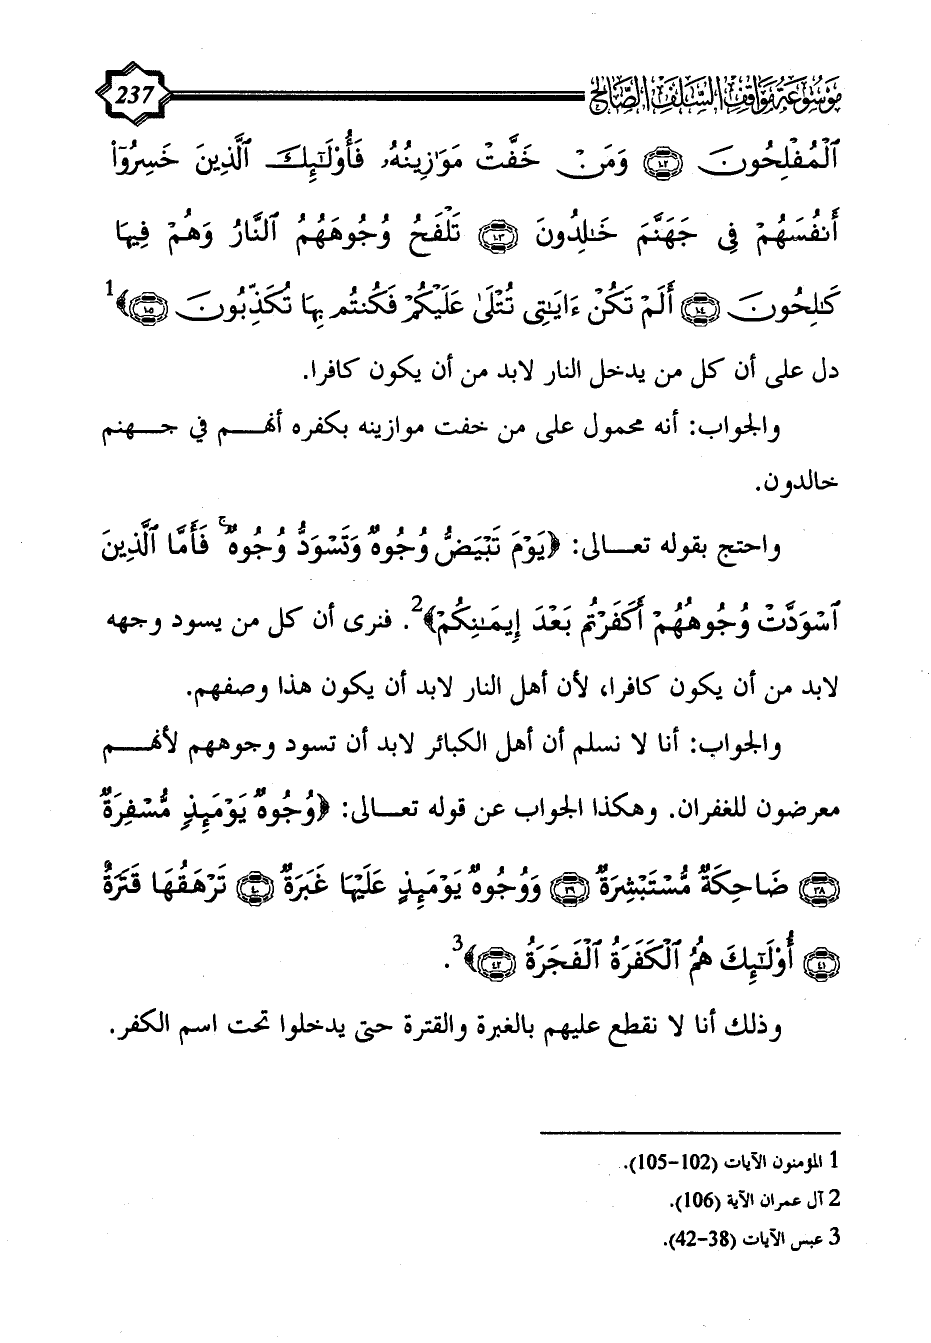 موسوعة مواقف السلف الصالح 237
ٱلْمُفْلِحُونَ ﴿١٠٢﴾ وَمَنْ خَفَّتْ مَوَٰزِينُهُۥ فَأُوْلَٰٓئِكَ ٱلَّذِينَ خَسِرُوٓاْ
أَنفُسَهُمْ فِى جَهَنَّمَ خَٰلِدُونَ ﴿١٠٣﴾ تَلْفَحُ وُجُوهَهُمُ ٱلنَّارُ وَهُمْ فِيهَا
كَٰلِحُونَ ﴿١٠٤﴾ أَلَمْ تَكُنْ ءَايَٰتِى تُتْلَىٰ عَلَيْكُمْ فَكُنتُم بِهَا تُكَذِّبُونَ ﴿١٠٥﴾﴾1
دل على أن كل من يدخل النار لابد من أن يكون كافرا.
والجواب: أنه محمول على من خفت موازينه بكفره أنهم في جهنم
خالدون.
واحتج بقوله تعالى: ﴿يَوْمَ تَبْيَضُّ وُجُوهٌ وَتَسْوَدُّ وُجُوهٌ ۚ فَأَمَّا ٱلَّذِينَ
ٱسْوَدَّتْ وُجُوهُهُمْ أَكَفَرْتُم بَعْدَ إِيمَٰنِكُمْ﴾2. فنرى أن كل من يسود وجهه
لابد من أن يكون كافرا، لأن أهل النار لابد أن يكون هذا وصفهم.
والجواب: أنا لا نسلم أن أهل الكبائر لابد أن تسود وجوههم لأنهم
معرضون للغفران. وهكذا الجواب عن قوله تعالى: ﴿وُجُوهٌ يَوْمَئِذٍ مُّسْفِرَةٌ
﴿٣٨﴾ ضَاحِكَةٌ مُّسْتَبْشِرَةٌ ﴿٣٩﴾ وَوُجُوهٌ يَوْمَئِذٍ عَلَيْهَا غَبَرَةٌ ﴿٤٠﴾ تَرْهَقُهَا قَتَرَةٌ
﴿٤١﴾ أُوْلَٰٓئِكَ هُمُ ٱلْكَفَرَةُ ٱلْفَجَرَةُ ﴿٤٢﴾﴾3.
وذلك أنا لا نقطع عليهم بالغبرة والقترة حتى يدخلوا تحت اسم الكفر.
1 المؤمنون الآيات (102-105).
2 آل عمران الآية (106).
3 عبس الآيات (38-42).